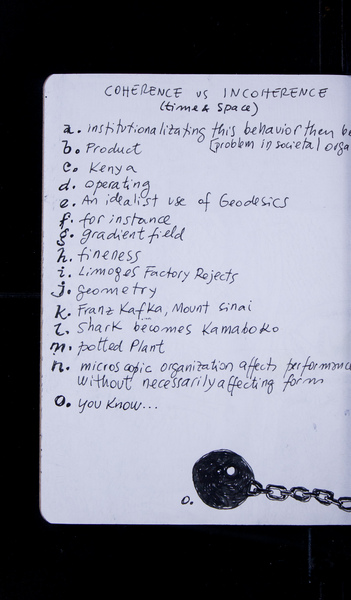 COHERENCE vs INCOHERENCE
(time & space)
a. institutionalizating this behavior then be
b. Product [problem in societal orga
c. Kenya
d. operating
e. An idealist use of Geodesics
f. for instance
g. gradient field
h. fineness
i. Limoges Factory Rejects
j. geometry
k. Franz Kafka, Mount Sinai
l. Shark becomes Kamaboko
m. potted Plant
n. microscopic organization affects performance
without necessarily affecting form
o. you know...
o.